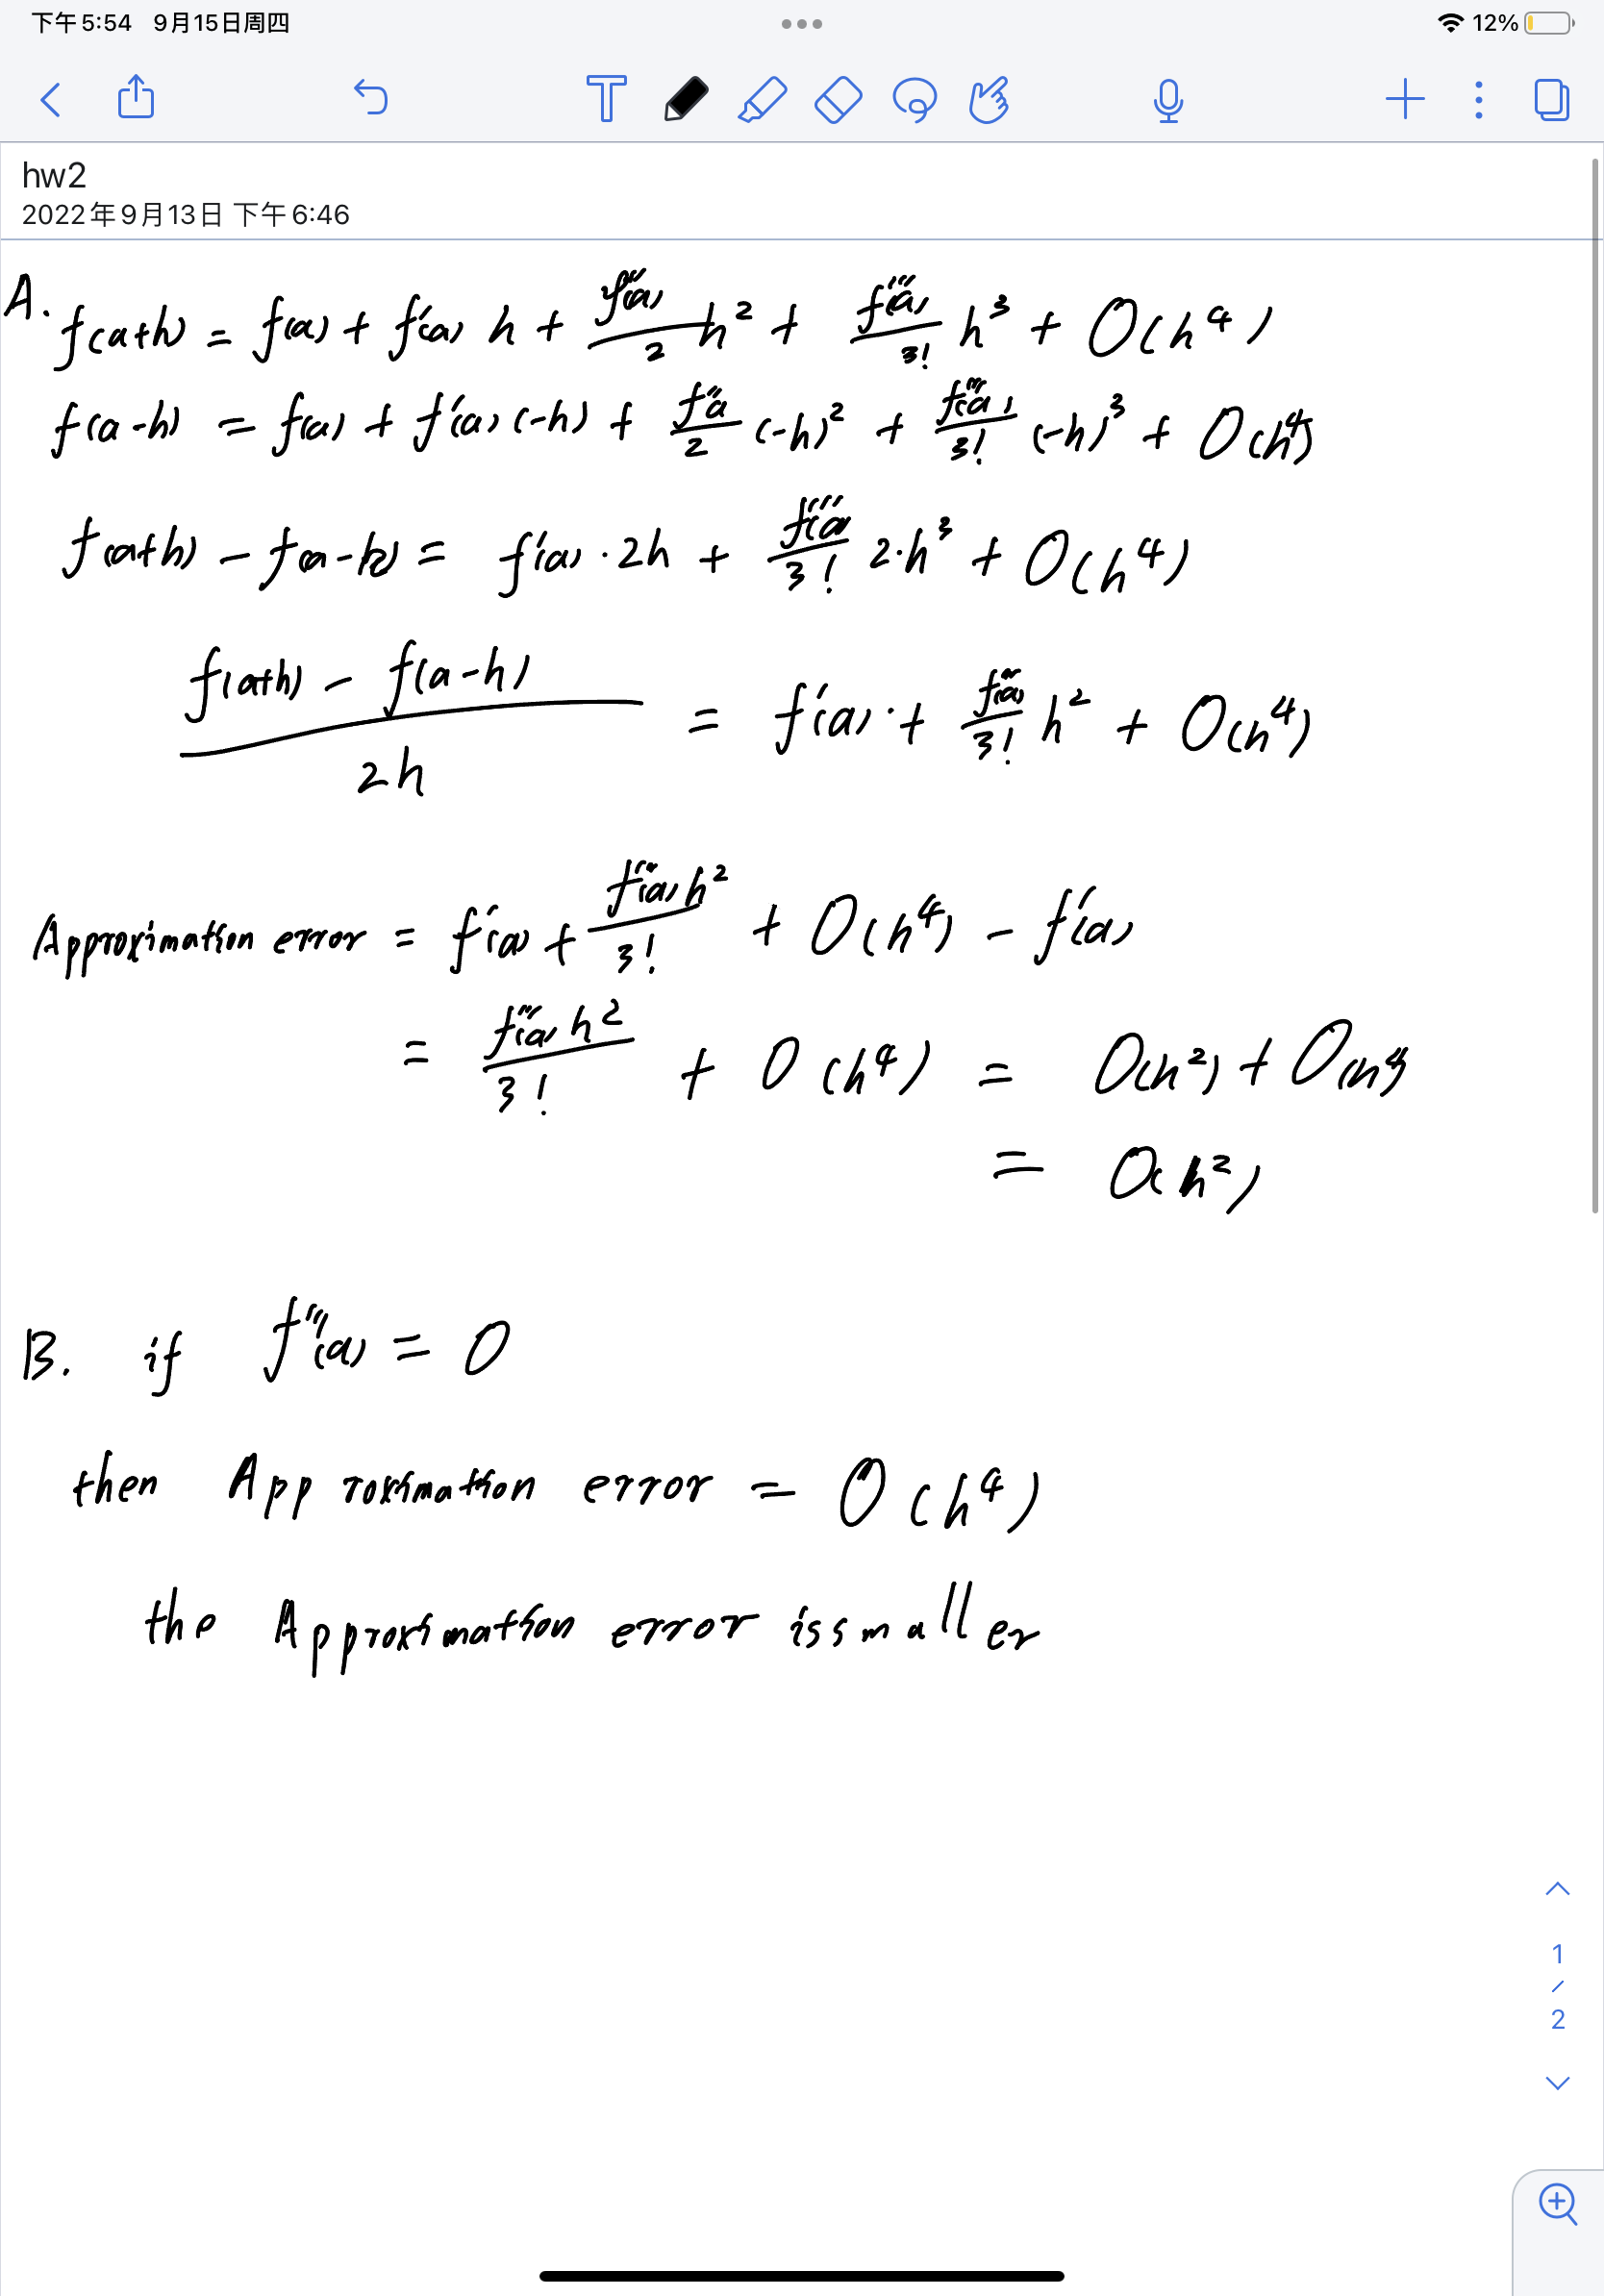 下午5:54 9月15日周四
12%
T
hw2
2022年9月13日 下午6:46
A. f(a+h) = f(a) + f'(a) h + f''(a)/2 h² + f'''(a)/3! h³ + O(h⁴)
f(a-h) = f(a) + f'(a) (-h) + f''a/2 (-h)² + f'''(a)/3! (-h)³ + O(h⁴)
f(a+h) - f(a-h) = f'(a) · 2h + f'''(a)/3! 2·h³ + O(h⁴)
(f(a+h) - f(a-h))/2h = f'(a) · + f'''(a)/3! h² + O(h⁴)
Approximation error = f'(a) + f'''(a)h²/3! + O(h⁴) - f'(a)
= f'''(a)h²/3! + O(h⁴) = O(h²) + O(h⁴)
= O(h²)
B. if f'''(a) = 0
then Approximation error = O(h⁴)
the Approximation error is smaller
1
/
2